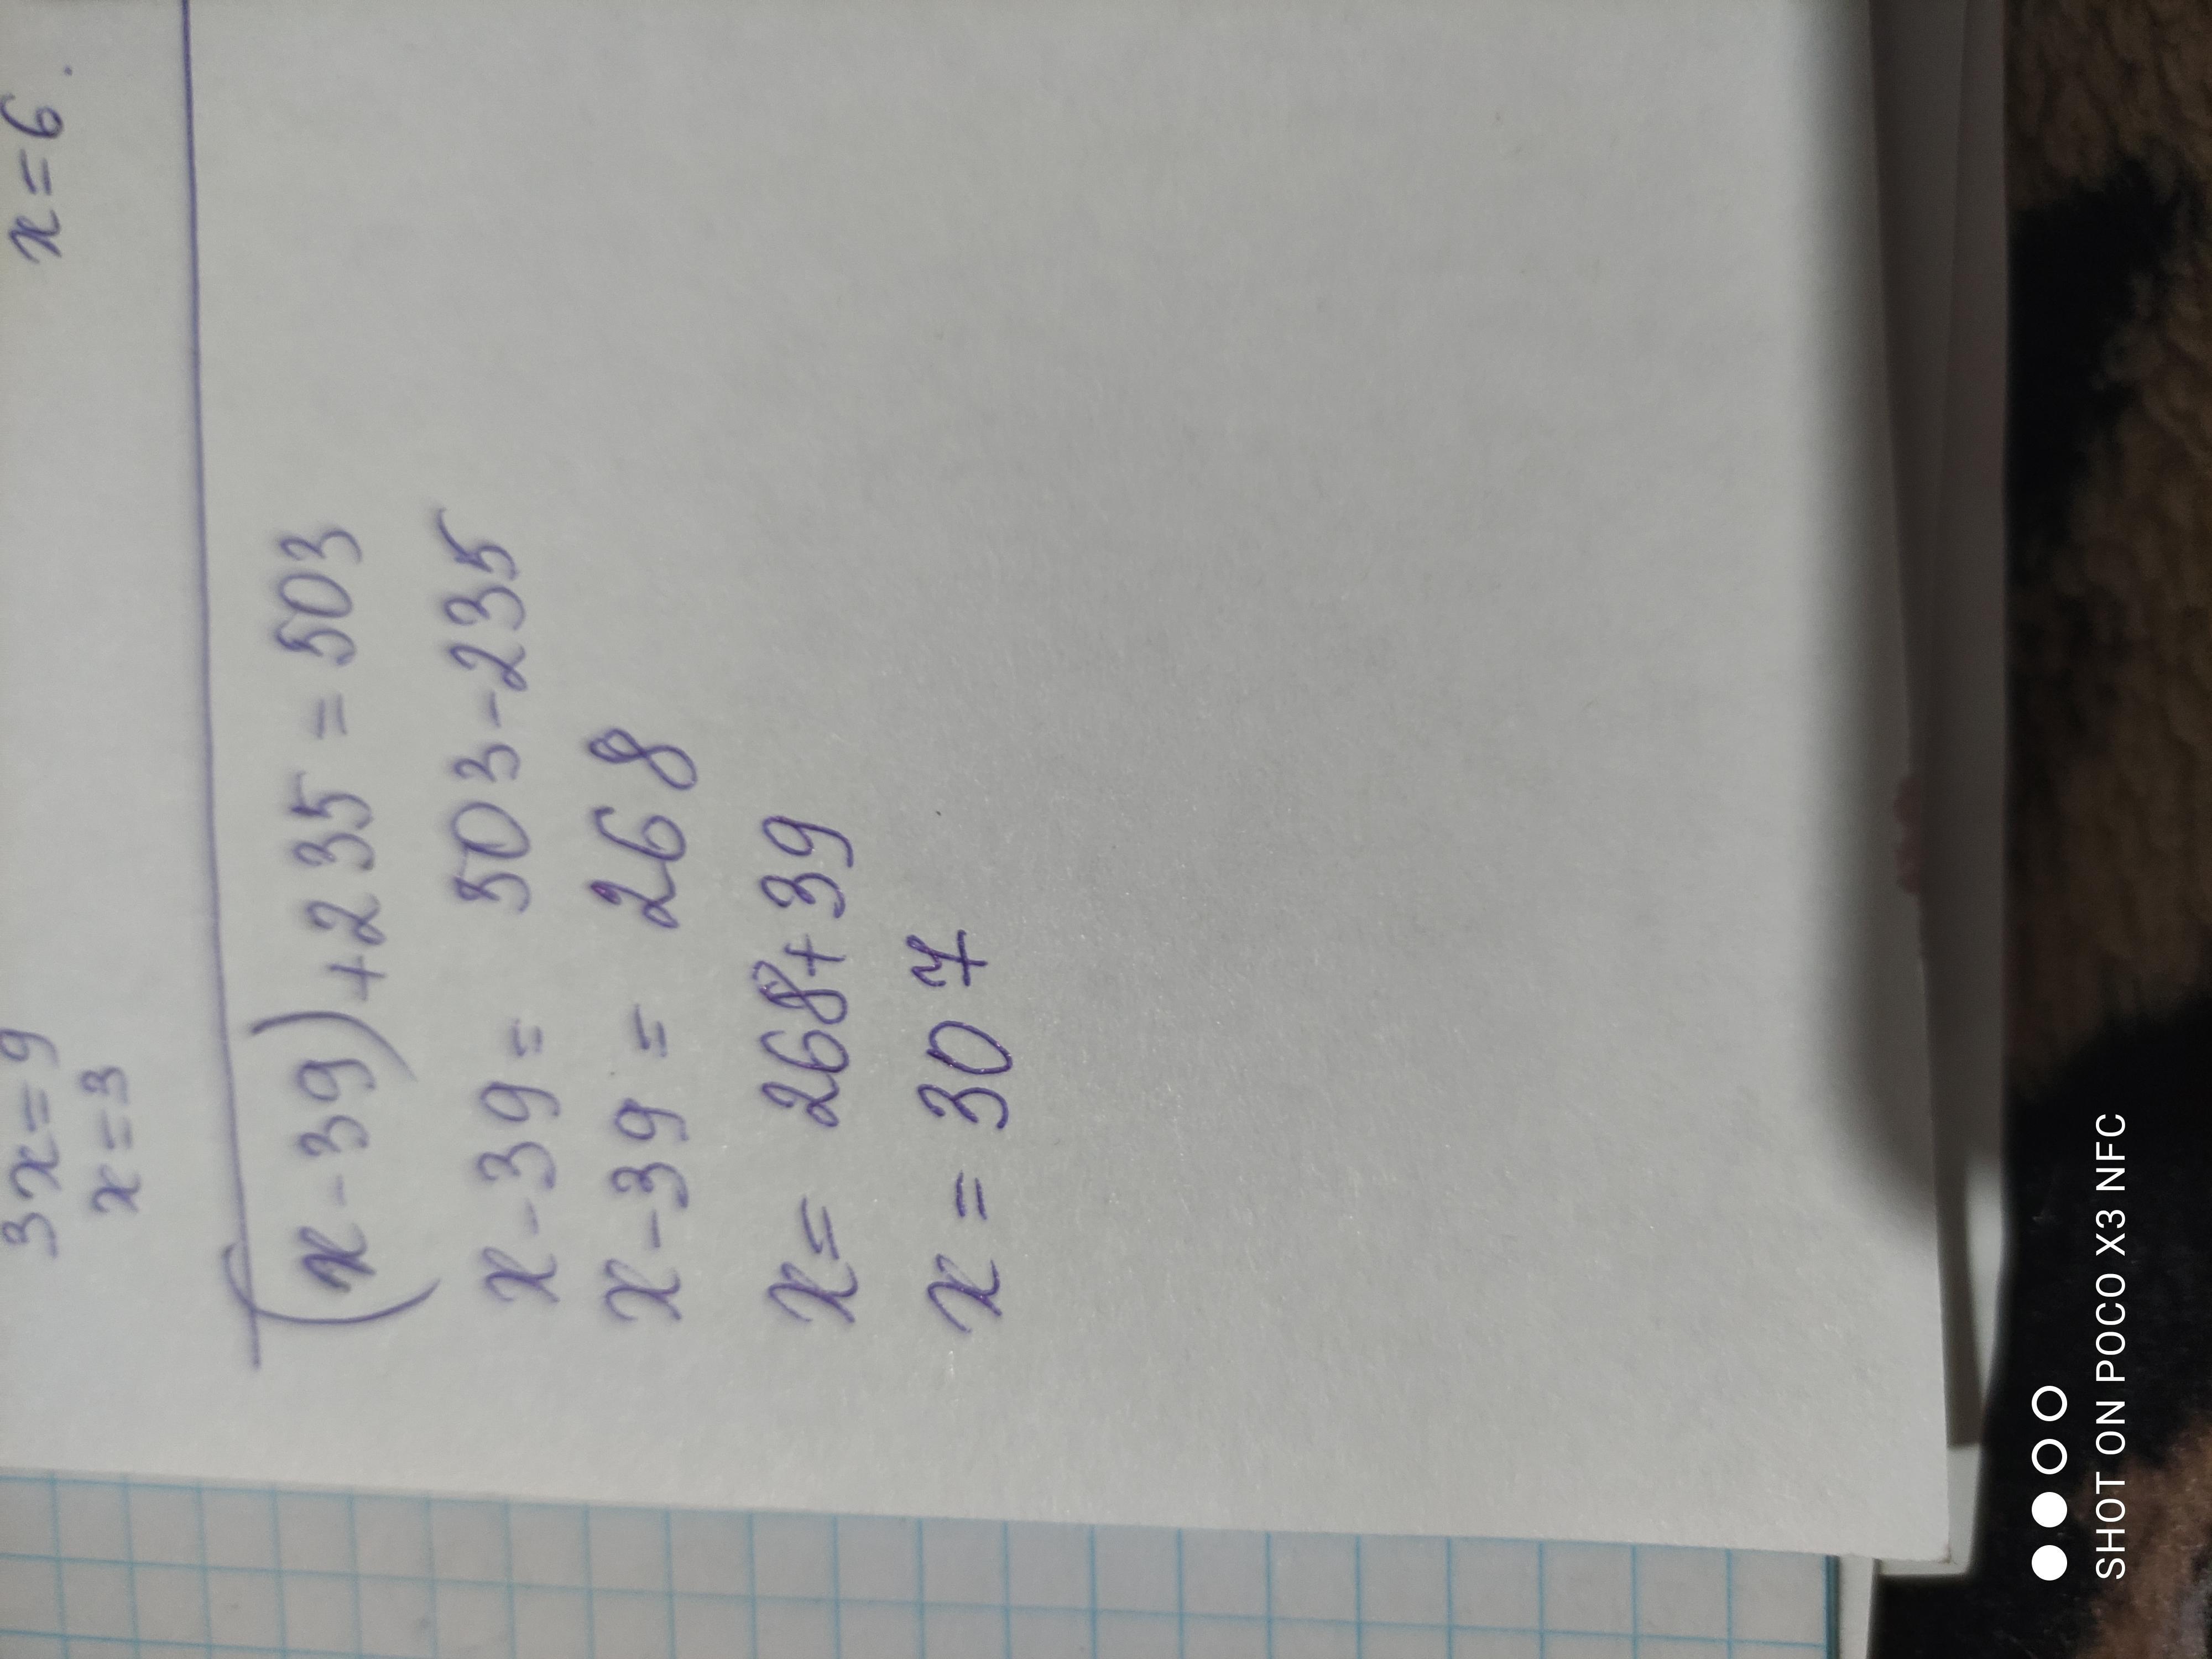 3x=9
x=3
x=6.
(x-39)+235=503
x-39= 503-235
x-39= 268
x= 268+39
x=307
SHOT ON POCO X3 NFC